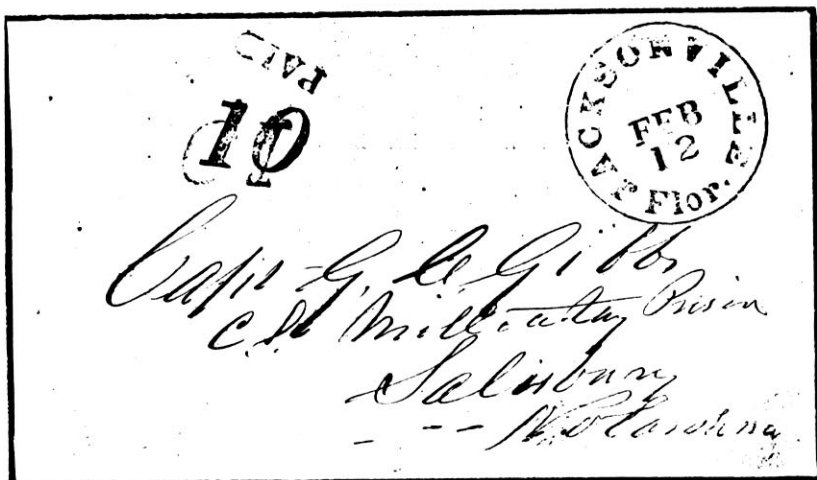 PAID
10
JACKSONVILLE
FEB
12
Flor.
Capt G. C. Gibbs
C.S. Millitatay Prison
Salisbury
No Carolina